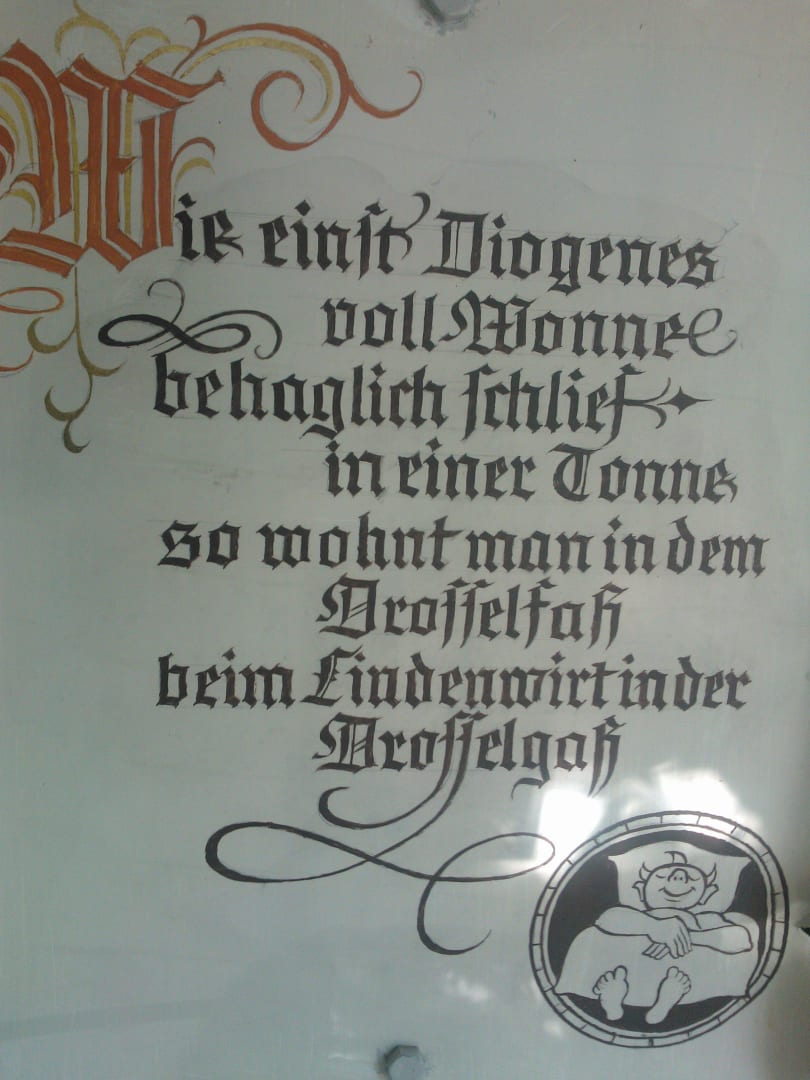 Wie einst Diogenes
voll Wonne
behaglich schlief
in einer Tonne
so wohnt man in dem
Drosselfaß
beim Lindenwirt in der
Drosselgaß